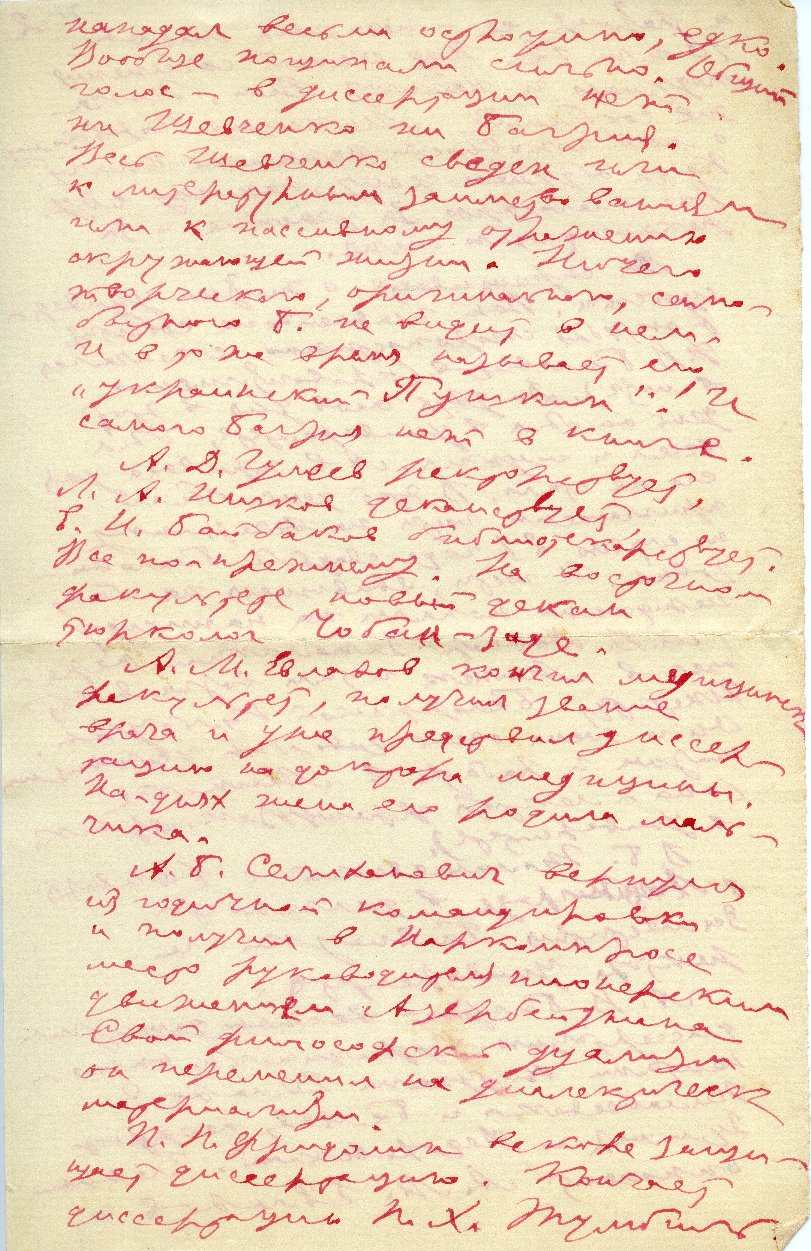 нападал весьма остроумно, едко.
Вообще пощипали сильно. Общий
голос – в диссертации нет
ни Шевченко ни Багрия.
Весь Шевченко сведен или
к литературным заимствованиям
или к пассивному отражению
окружающей жизни. Ничего
творческого, оригинального, само-
бытного Б. не видит в нем.
И в то же время называет его
"украинский Пушкин"! И
самого Багрия нет в книге.
А. Д. Гуляев ректорствует,
Л. А. Ишков деканствует,
Е. И. Байбаков библиотекарствует.
Все по-прежнему. На восточном
факультете новый декан
тюрколог Чобан-заде.
А. М. Евлахов кончил медицинск
факультет, получил звание
врача и уже представил диссер
тацию на доктора медицины.
На-днях жена его родила маль-
чика.
А. Б. Селиханович вернулся
из годичной командировки
и получил в Наркомпросе
место руководителя пионерским
движением Азербейджана
Свой философский дуализм
он переменил на диалектическ
материализм.
П. П. Фридолин вскоре защи-
щает диссертацию. Кончает
диссертацию П. Х. Тумбиль.